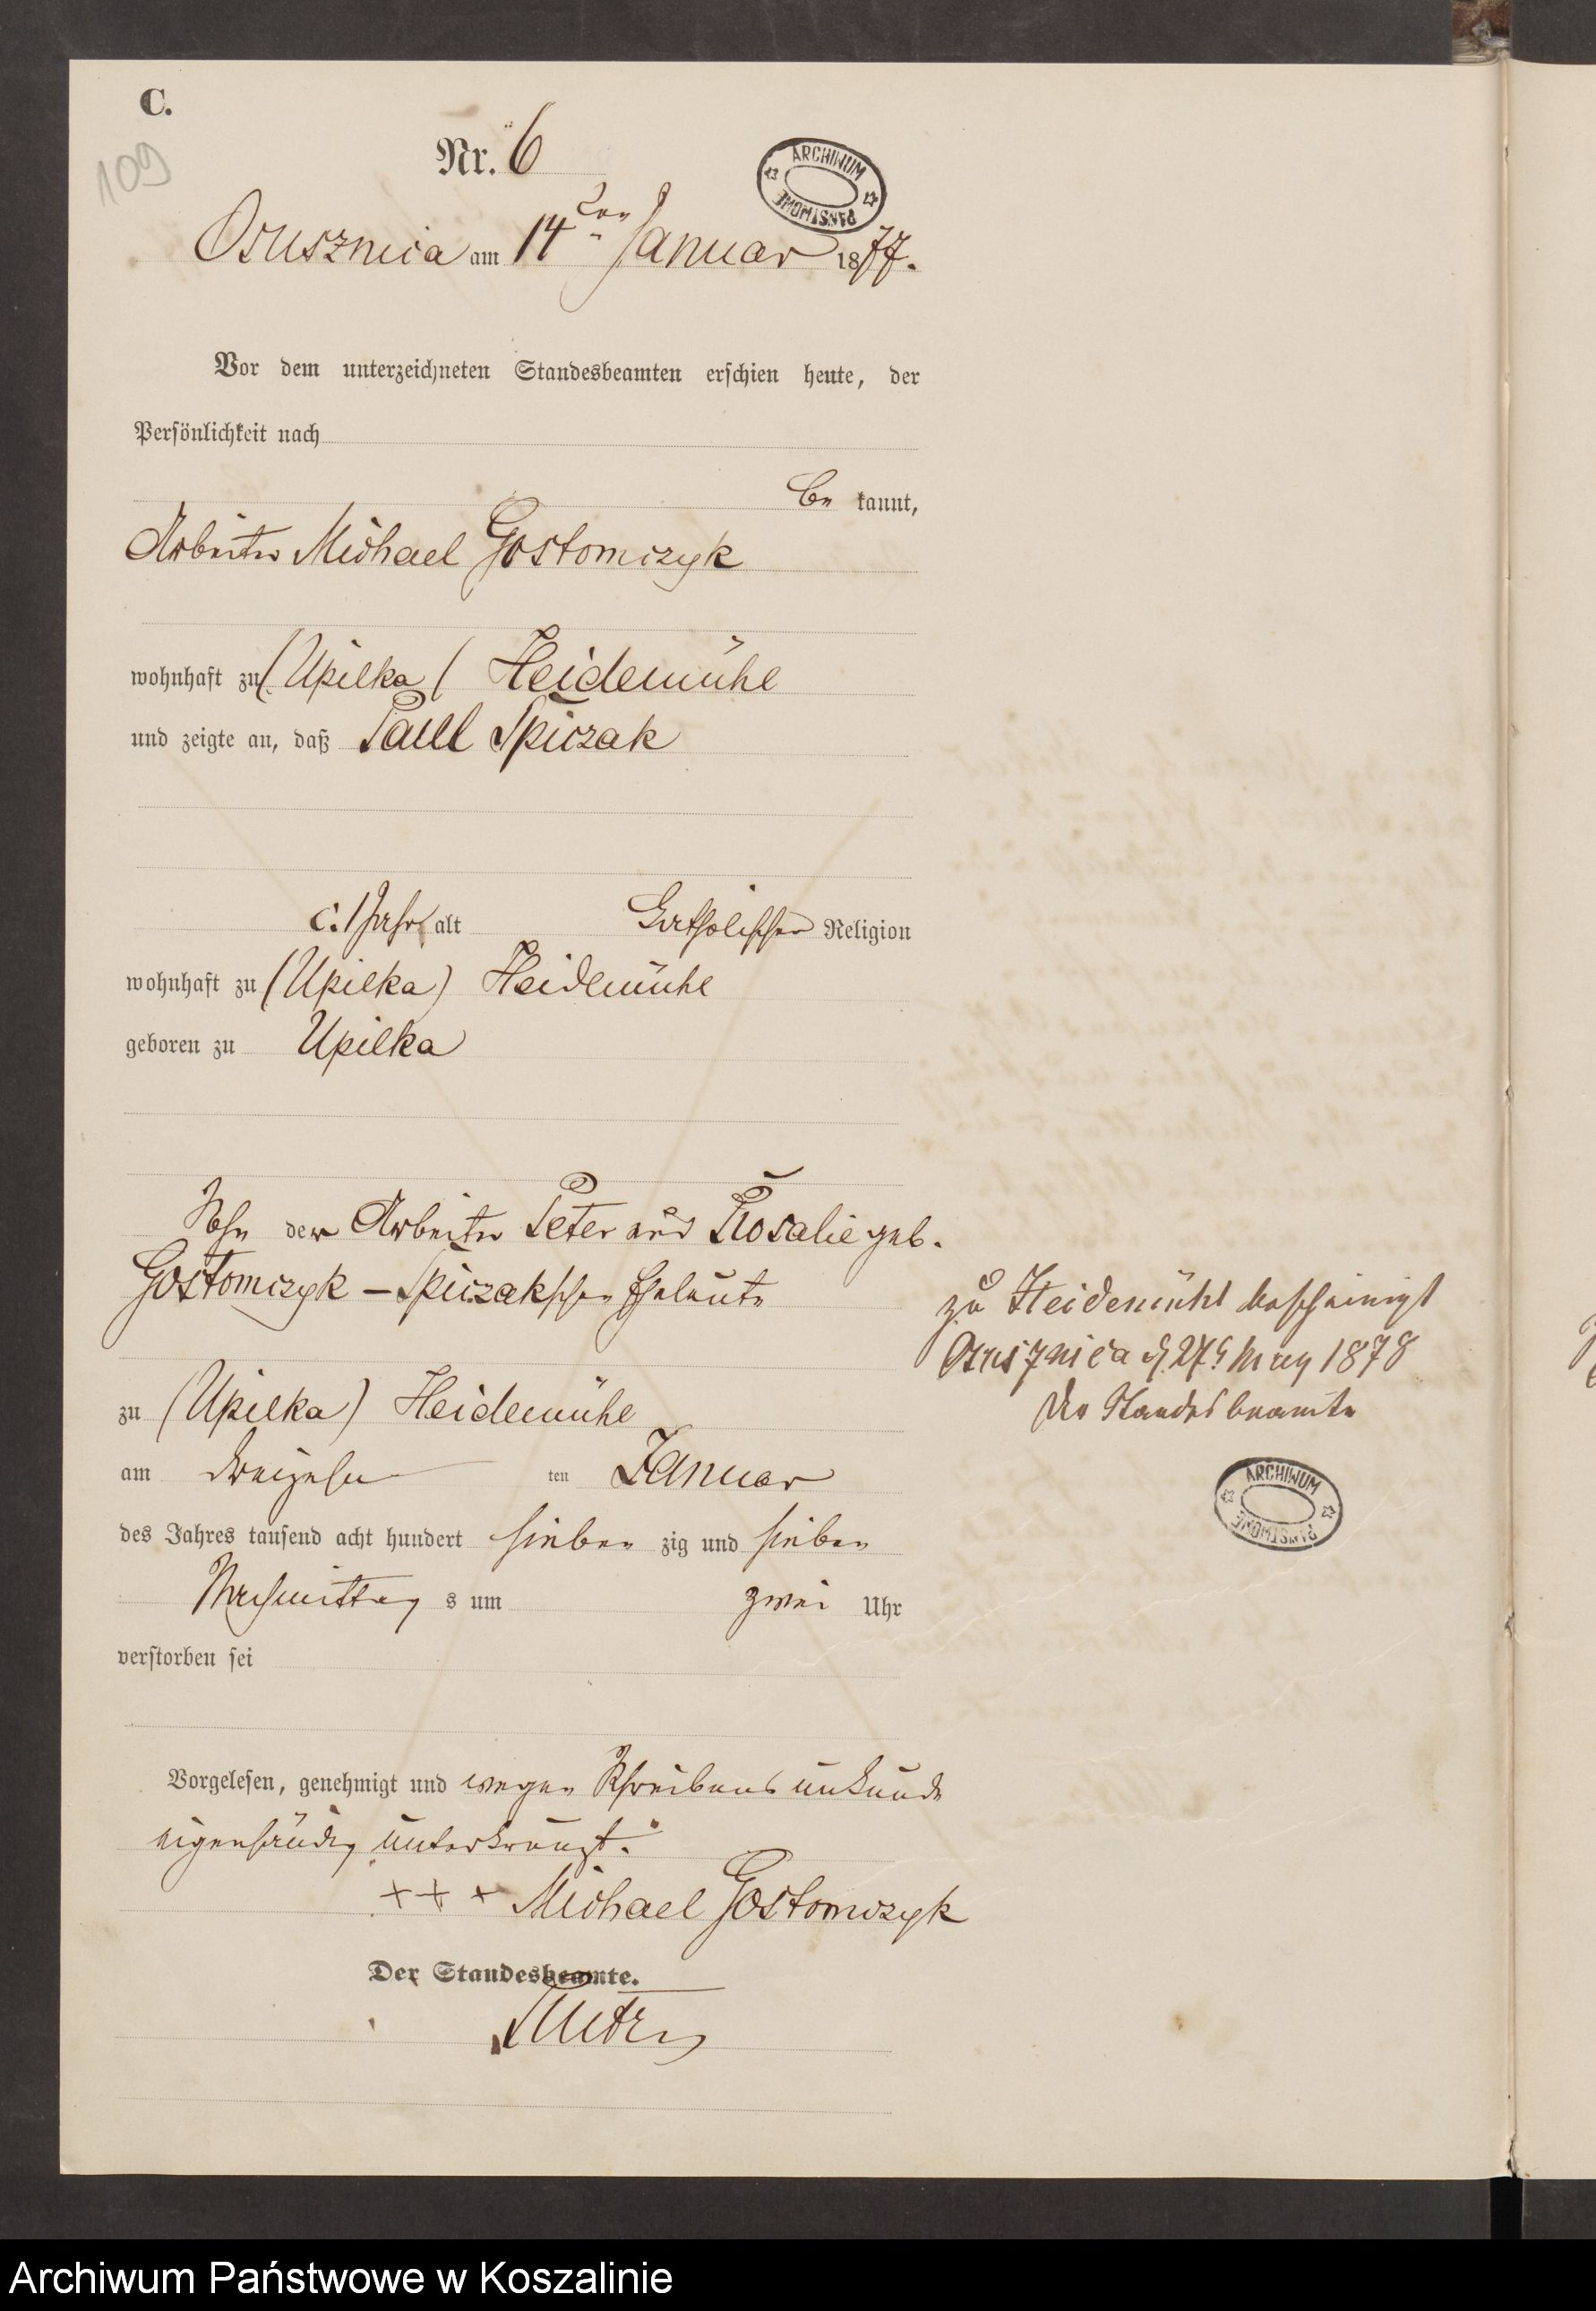 C.
109
Nr. 6
ARCHIWUM PAŃSTWOWE
Osusznica am 14ten Januar 1877.
Vor dem unterzeichneten Standesbeamten erschien heute, der
Persönlichkeit nach
be kannt,
Arbeiter Michael Gostomczyk
wohnhaft zu (Upilka) Heidemühe
und zeigte an, daß Paul Spiczak
c. 1 Jahr alt Catholischer Religion
wohnhaft zu (Upilka) Heidemühe
geboren zu Upilka
Sohn der Arbeiter Peter und Rosalie geb.
Gostomczyk - Spiczakschen Eheleute
zu Heidemühl bescheinigt
Osusznica d. 27t. May 1878
Der Standesbeamte
zu (Upilka) Heidemühe
am dreizehn ten Januar
des Jahres tausend acht hundert sieben zig und sieben
Nachmittag s um zwei Uhr
verstorben sei
ARCHIWUM PAŃSTWOWE
Vorgelesen, genehmigt und wegen Schreibensunkunde
eigenhändig unterkreuzt.
+ + + Michael Gostomczyk
Der Standesbeamte.
Archiwum Państwowe w Koszalinie